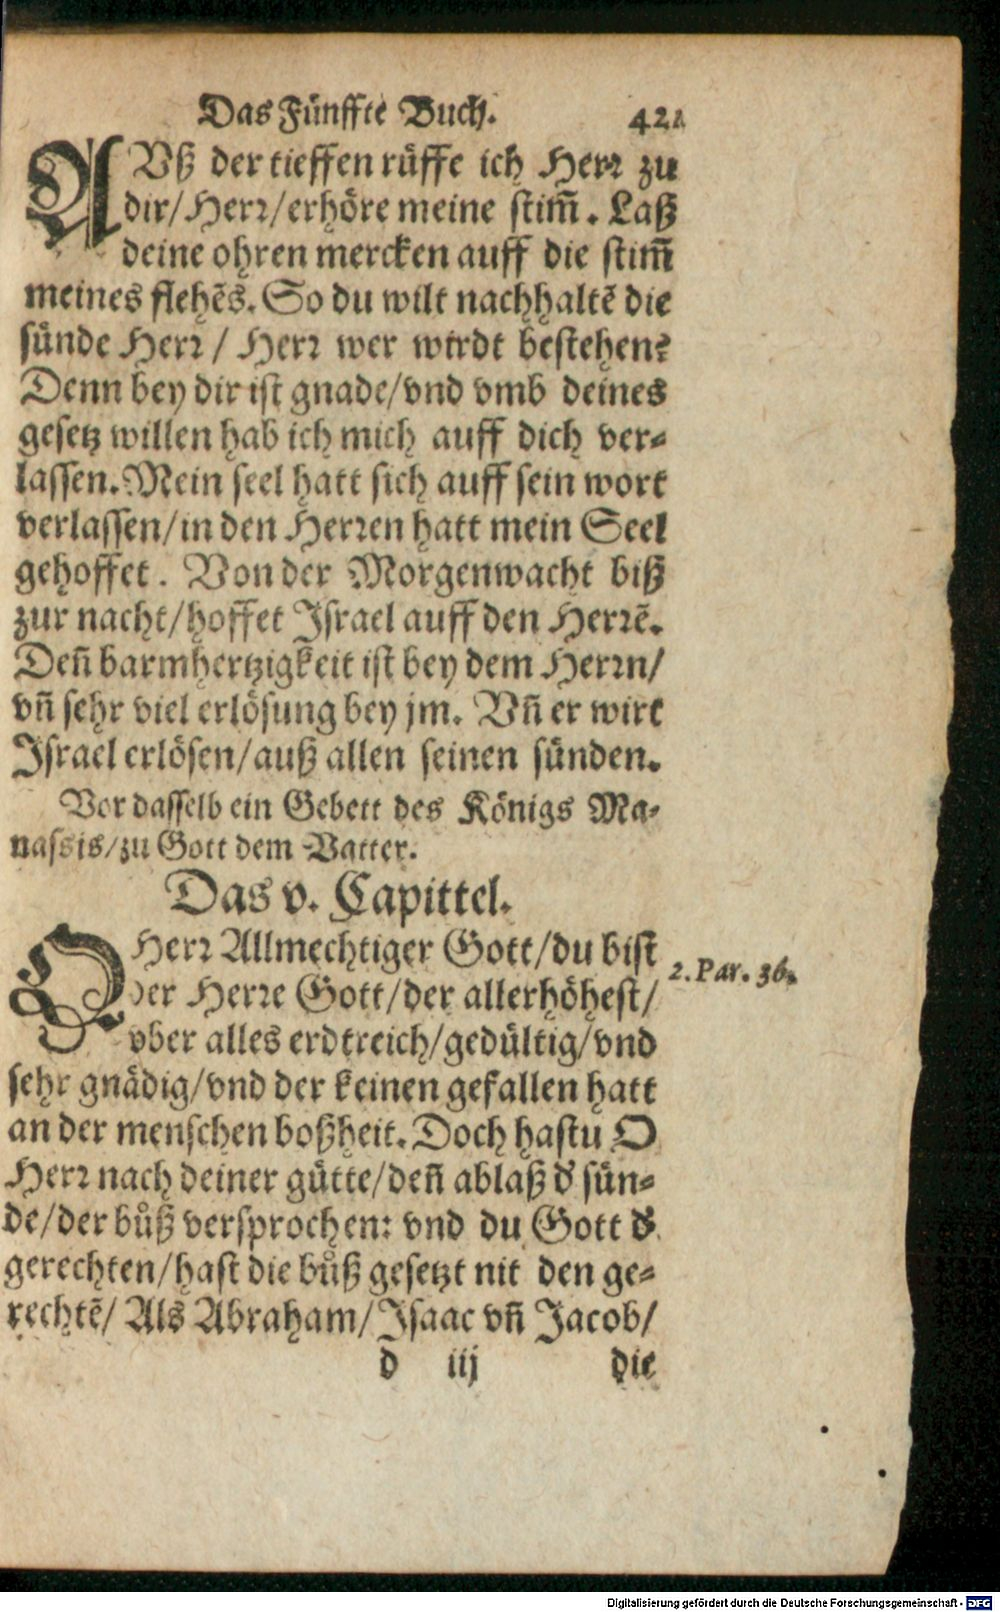 Das Fünffte Buch. 421
AVß der tieffen rüffe ich Herr zu
dir/Herr/erhöre meine stim̄. Laß
deine ohren mercken auff die stim̄
meines flehēs. So du wilt nachhaltē die
sünde Herr / Herr wer wirdt bestehen?
Denn bey dir ist gnade/vnd vmb deines
gesetz willen hab ich mich auff dich ver-
lassen. Mein seel hatt sich auff sein wort
verlassen/in den Herren hatt mein Seel
gehoffet. Von der Morgenwacht biß
zur nacht/hoffet Israel auff den Herrē.
Den̄ barmhertzigkeit ist bey dem Herrn/
vn̄ sehr viel erlösung bey jm. Vn̄ er wirt
Israel erlösen/auß allen seinen sünden.
Vor dasselb ein Gebett des Königs Ma-
nassis/zu Gott dem Vatter.
Das v. Capittel.
O Herr Allmechtiger Gott/du bist
der Herre Gott/der allerhöhest/
vber alles erdtreich/gedültig/vnd
sehr gnädig/vnd der keinen gefallen hatt
an der menschen boßheit. Doch hastu O
Herr nach deiner gütte/den̄ ablaß d' sün-
de/der bůß versprochen: vnd du Gott d'
gerechten/hast die bůß gesetzt nit den ge-
rechtē/ Als Abraham/Isaac vn̄ Jacob/
2. Par. 36.
d iij die
Digitalisierung gefördert durch die Deutsche Forschungsgemeinschaft - DFG